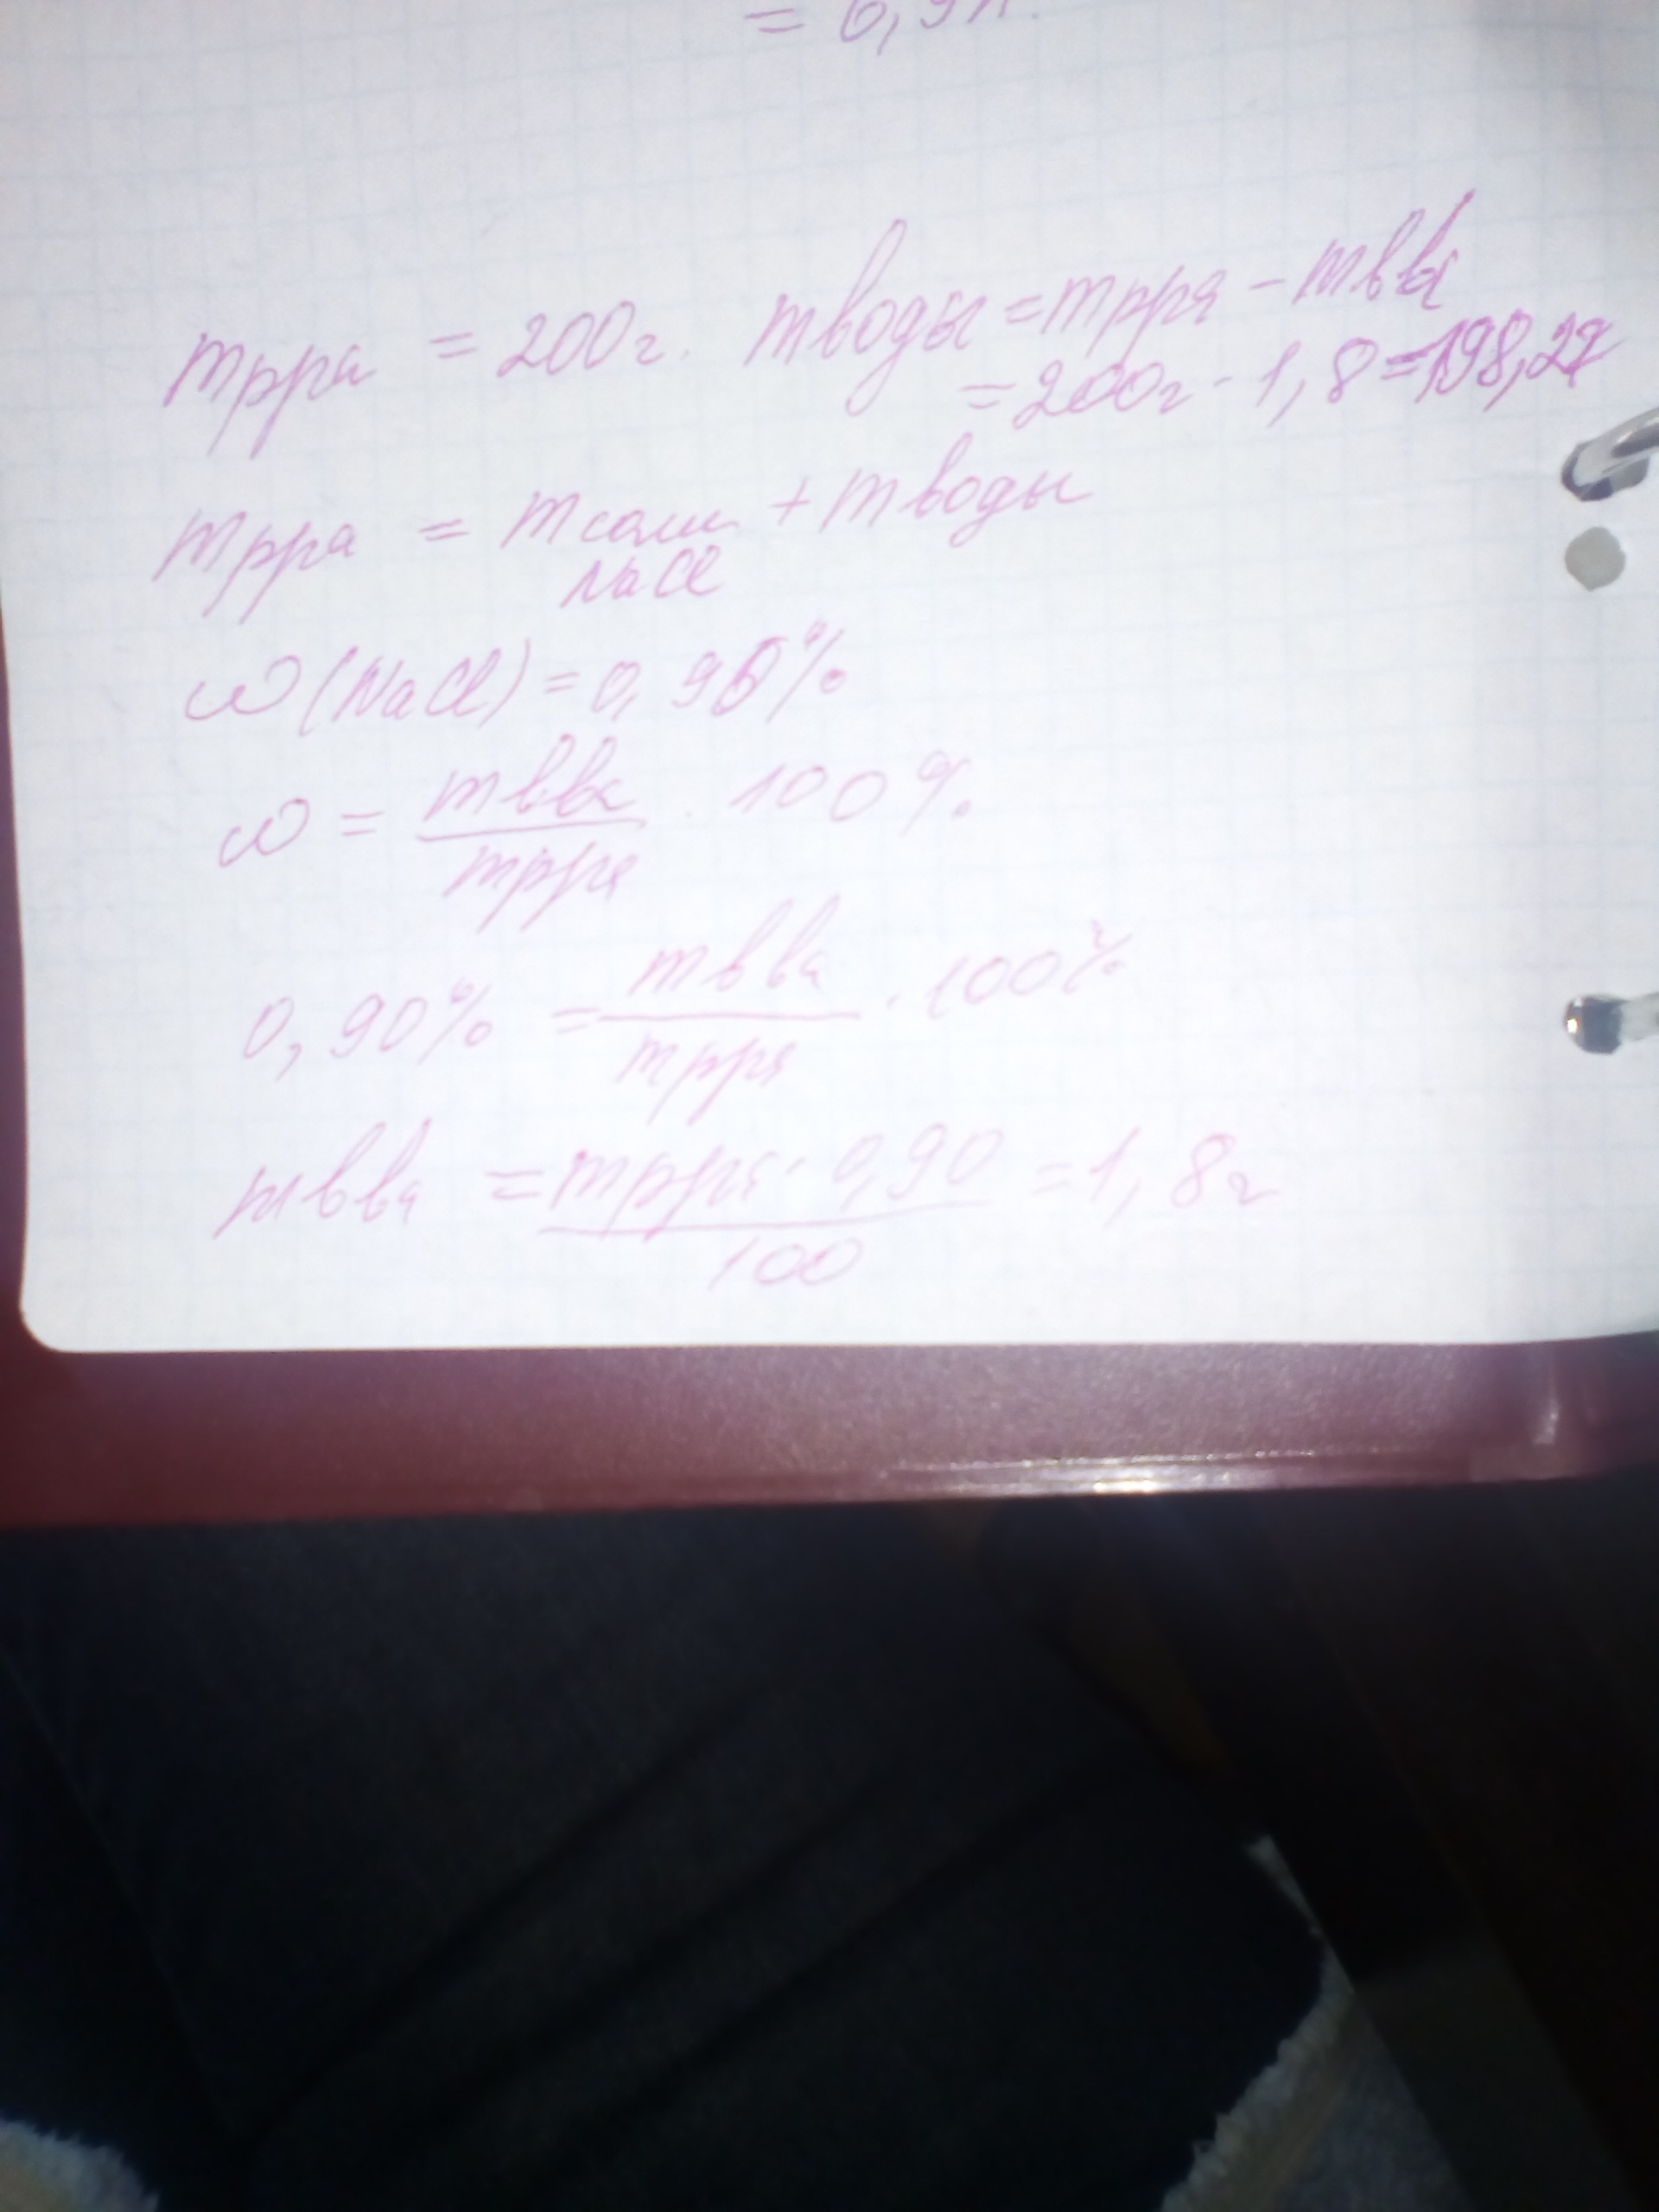 = 6,9л.
mрра = 200г. mводы = mрра − mвва
= 200г − 1,8 = 198,2г
mрра = mсоли + mводы
NaCl
ω(NaCl) = 0,90%
ω = mвва / mрра · 100%
0,90% = mвва / mрра · 100%
mвва = mрра · 0,90 / 100 = 1,8г